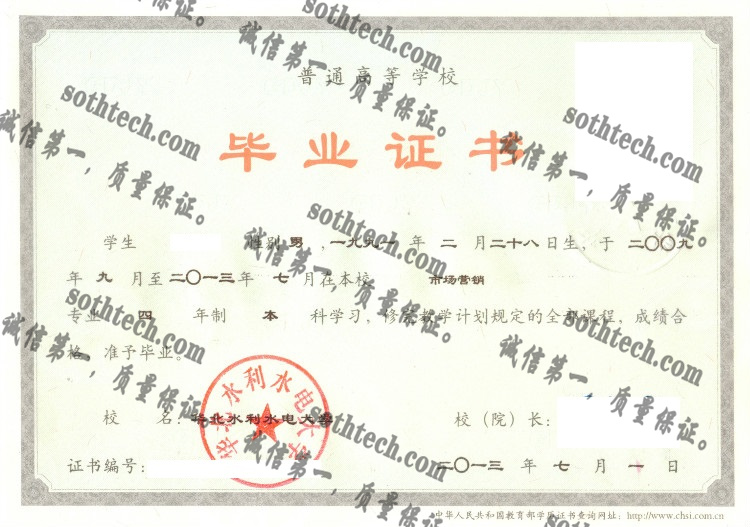 普通高等学校
毕业证书
学生 性别 男 , 一九九一 年 二 月二十八日生, 于 二〇〇九
年 九 月至二〇一三年 七 月在本校 市场营销
专业 四 年制 本 科学习, 修完教学计划规定的全部课程, 成绩合
格, 准予毕业。
校 名: 华北水利水电大学 校(院)长:
华北水利水电大学
证书编号: 二〇一三 年 七 月 一 日
中华人民共和国教育部学历证书查询网址: http://www.chsi.com.cn
sothtech.com
诚信第一,质量保证。
sothtech.com
诚信第一,质量保证。
sothtech.com
诚信第一,质量保证。
sothtech.com
诚信第一,质量保证。
sothtech.com
诚信第一,质量保证。
sothtech.com
诚信第一,质量保证。
sothtech.com
诚信第一,质量保证。